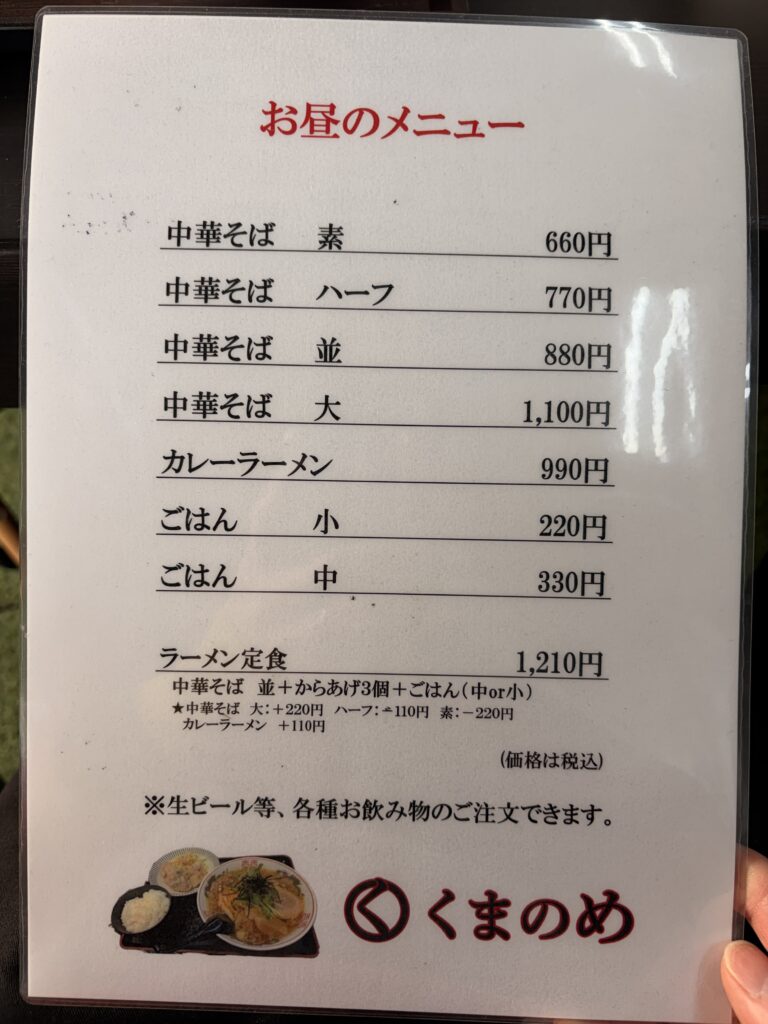 お昼のメニュー
中華そば 素 660円
中華そば ハーフ 770円
中華そば 並 880円
中華そば 大 1,100円
カレーラーメン 990円
ごはん 小 220円
ごはん 中 330円
ラーメン定食 1,210円
中華そば 並＋からあげ3個＋ごはん（中or小）
★中華そば 大：＋220円 ハーフ：－110円 素：－220円
カレーラーメン ＋110円
（価格は税込）
※生ビール等、各種お飲み物のご注文できます。
く くまのめ